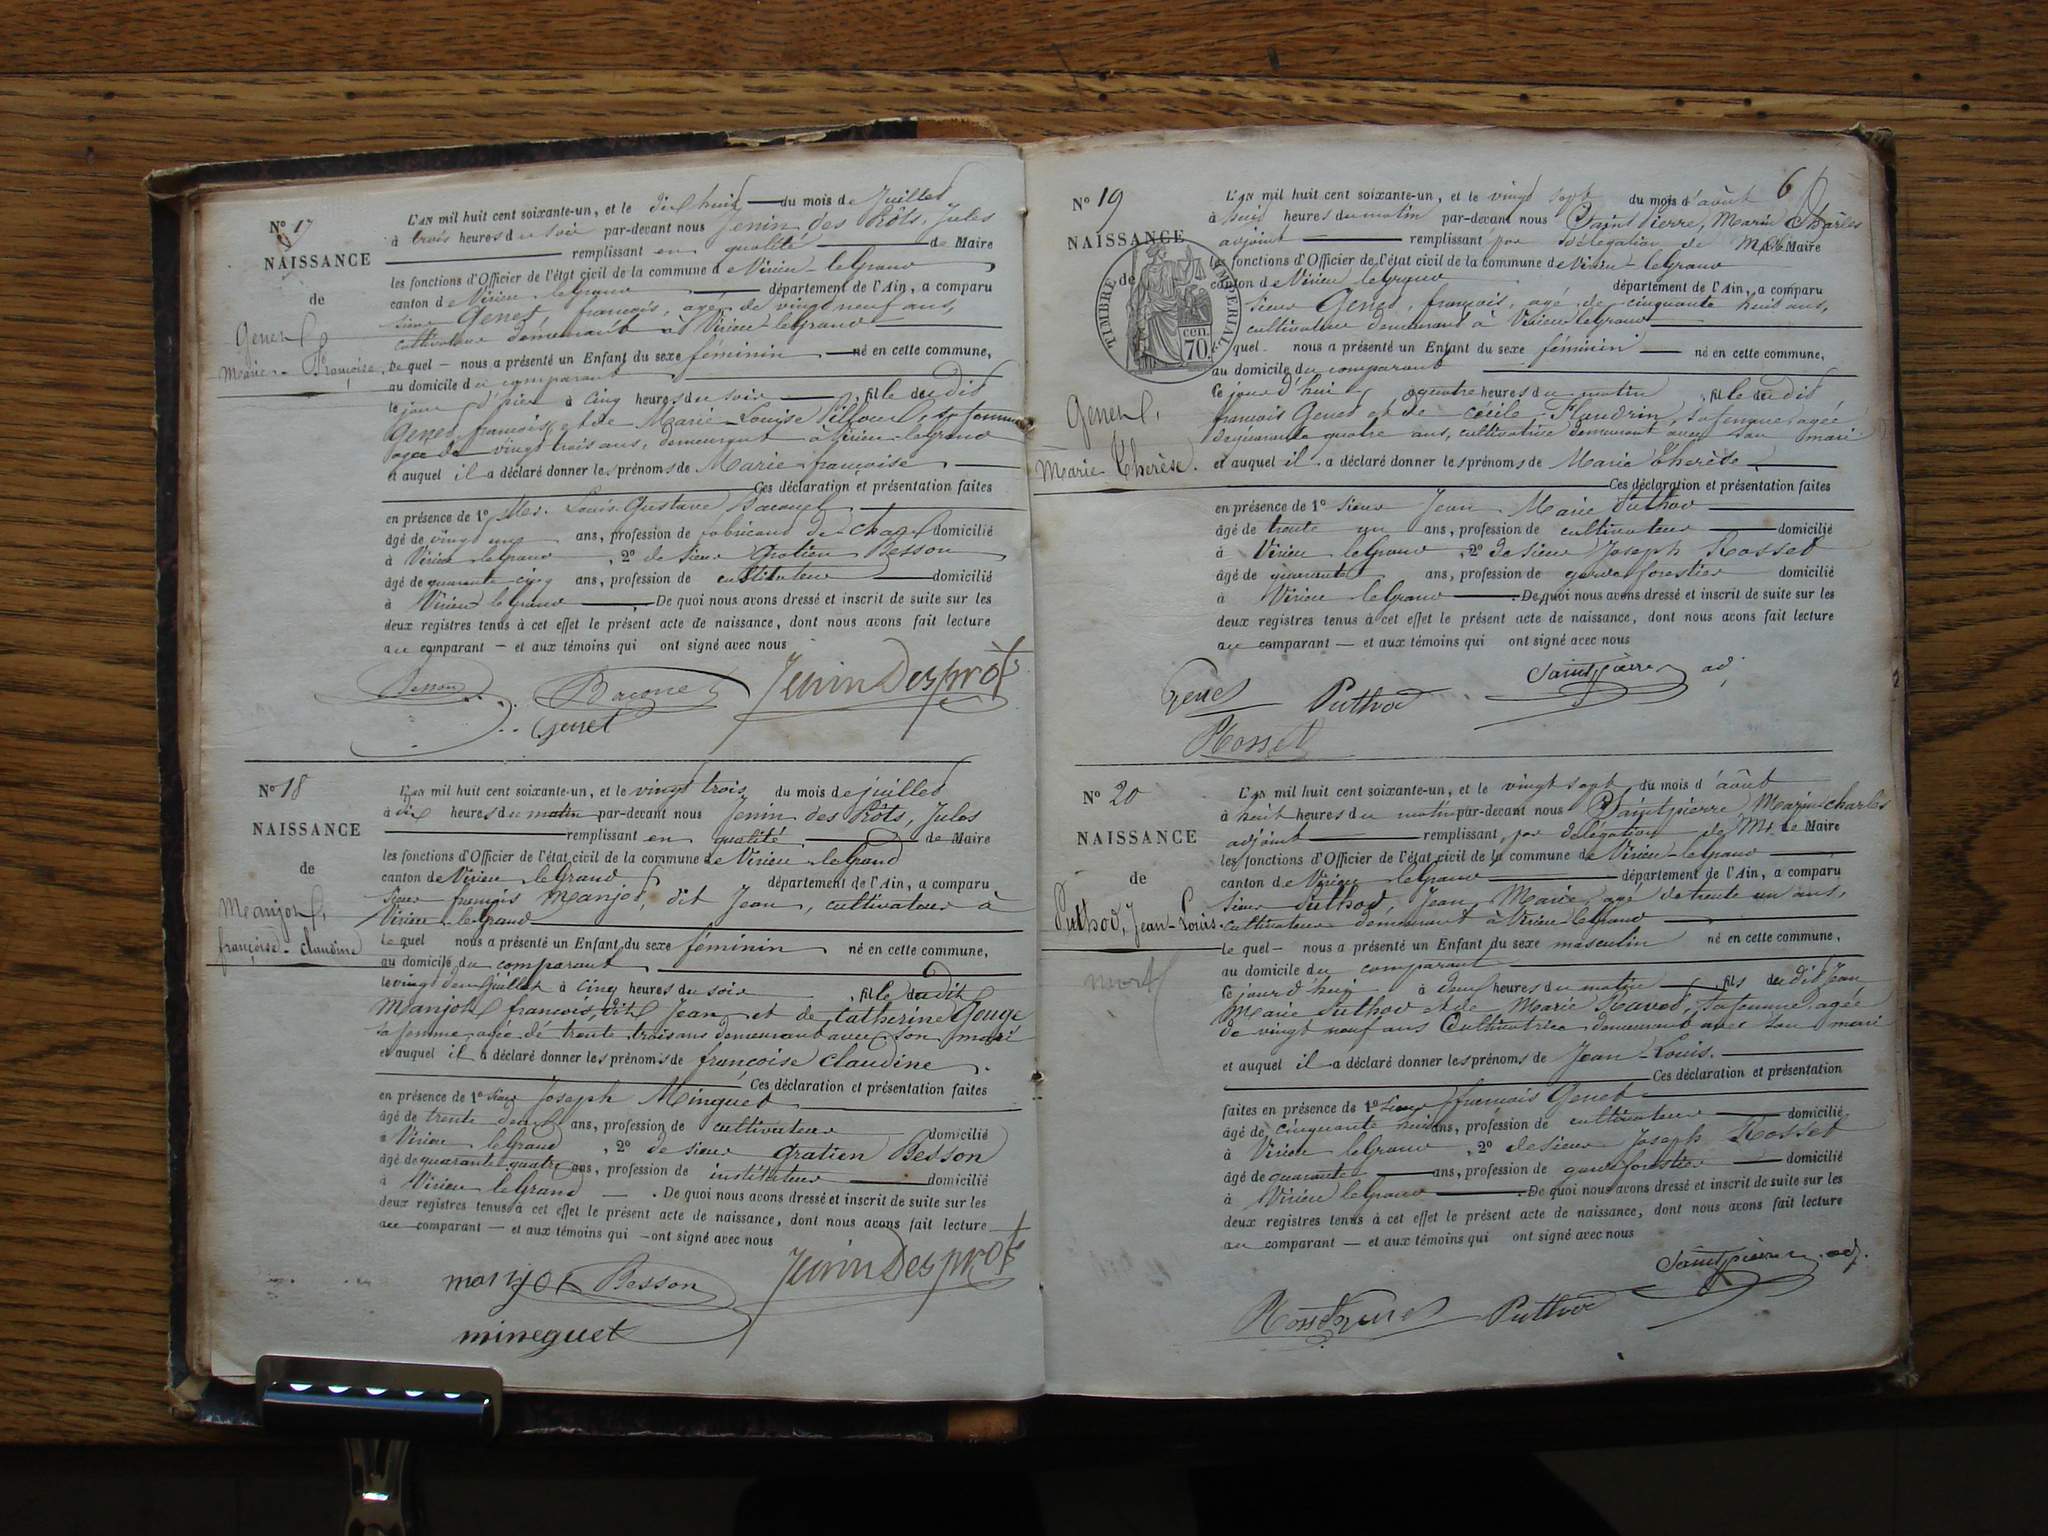 N° 17
NAISSANCE
de
Genet,
Marie-Françoise.
L'AN mil huit cent soixante-un, et le dix huit du mois de Juillet
à trois heures du soir par-devant nous Jenin des Prôts, Jules
remplissant en qualité de Maire
les fonctions d'Officier de l'état civil de la commune de Virieu-leGrand
canton de Virieu-leGrand département de l'Ain, a comparu
sieur Genet, françois, agé de vingt neuf ans,
cultivateur demeurant à Virieu-leGrand
Le quel nous a présenté un Enfant du sexe féminin né en cette commune,
au domicile du comparant
le jour d'hier à cinq heures du soir, fille dudit
Genet, françois et de Marie-Louise sa femme
agée de vingt trois ans, demeurant à Virieu-leGrand
et auquel il a déclaré donner les prénoms de Marie françoise
Ces déclaration et présentation faites
en présence de 1° Mr. Louis Gustave Baconet
âgé de vingt ans, profession de fabricant de domicilié
à Virieu-leGrand, 2° de sieur Gratien Besson
âgé de quarante cinq ans, profession de instituteur domicilié
à Virieu-leGrand De quoi nous avons dressé et inscrit de suite sur les
deux registres tenus à cet effet le présent acte de naissance, dont nous avons fait lecture
au comparant — et aux témoins qui ont signé avec nous
Besson Baconet Jenin Desprôts
Genet
N° 18
NAISSANCE
de
Manjot,
françoise-claudine
L'an mil huit cent soixante-un, et le vingt trois du mois de juillet
à dix heures du matin par-devant nous Jenin des Prôts, Jules
remplissant en qualité de Maire
les fonctions d'Officier de l'état civil de la commune de Virieu-leGrand
canton de Virieu leGrand département de l'Ain, a comparu
Sieur françois Manjot, dit Jean, cultivateur à
Virieu-leGrand
Le quel nous a présenté un Enfant du sexe féminin né en cette commune,
au domicile du comparant
le vingt deux juillet à cinq heures du soir, fille dudit
Manjot françois, dit Jean et de Catherine Gouge
sa femme agée de trente trois ans demeurant avec son mari
et auquel il a déclaré donner les prénoms de françoise claudine.
Ces déclaration et présentation faites
en présence de 1° Sieur Joseph Minguet
âgé de trente deux ans, profession de cultivateur domicilié
à Virieu leGrand, 2° de sieur Gratien Besson
âgé de quarante quatre ans, profession de instituteur domicilié
à Virieu leGrand — . De quoi nous avons dressé et inscrit de suite sur les
deux registres tenus à cet effet le présent acte de naissance, dont nous avons fait lecture
au comparant — et aux témoins qui — ont signé avec nous
manjot Besson Jenin Desprôts
mineguet
6
N° 19
NAISSANCE
de
TIMBRE IMPERIAL
cen.
70
Genet,
Marie-Therèse.
L'AN mil huit cent soixante-un, et le vingt sept du mois d'août
à huit heures du matin par-devant nous Saint Pierre, Marin Charles
adjoint remplissant par délégation de Mr. le Maire
les fonctions d'Officier de l'état civil de la commune de Virieu-leGrand
canton de Virieu leGrand département de l'Ain, a comparu
Sieur Genet, françois, agé de cinquante huit ans,
cultivateur demeurant à Virieu-leGrand
quel nous a présenté un Enfant du sexe féminin né en cette commune,
au domicile du comparant
Ce jour d'hui à quatre heures du matin, fille dudit
françois Genet et de cécile Flandrin, sa femme agée
de quarante quatre ans, cultivatrice demeurant avec son mari
et auquel il a déclaré donner les prénoms de Marie Therèse
Ces déclaration et présentation faites
en présence de 1° Sieur Jean Marie Puthod
âgé de trente un ans, profession de cultivateur domicilié
à Virieu leGrand, 2° de sieur Joseph Rosset
âgé de quarante ans, profession de garde forestier domicilié
à Virieu-leGrand De quoi nous avons dressé et inscrit de suite sur les
deux registres tenus à cet effet le présent acte de naissance, dont nous avons fait lecture
au comparant — et aux témoins qui ont signé avec nous
Genet Puthod Saintpierre adj
Rosset
N° 20
NAISSANCE
de
Puthod, Jean-Louis.
mort
L'an mil huit cent soixante-un, et le vingt sept du mois d'août
à huit heures du matin par-devant nous Saintpierre Marin charles
adjoint remplissant par délégation de Mr. le Maire
les fonctions d'Officier de l'état civil de la commune de Virieu-leGrand
canton de Virieu leGrand département de l'Ain, a comparu
Sieur Puthod, Jean Marie, agé de trente un ans,
cultivateur demeurant à Virieu-leGrand
Le quel — nous a présenté un Enfant du sexe masculin né en cette commune,
au domicile du comparant
Ce jour d'hui à deux heures du matin, fils dudit Jean
Marie Puthod et de Marie Ravet, sa femme agée
de vingt neuf ans Cultivatrice demeurant avec son mari
et auquel il a déclaré donner les prénoms de Jean-Louis.
Ces déclaration et présentation
faites en présence de 1° Sieur françois Genet
âgé de cinquante huit ans, profession de cultivateur domicilié
à Virieu leGrand, 2° de sieur Joseph Rosset
âgé de quarante ans, profession de garde forestier domicilié
à Virieu leGrand De quoi nous avons dressé et inscrit de suite sur les
deux registres tenus à cet effet le présent acte de naissance, dont nous avons fait lecture
au comparant — et aux témoins qui ont signé avec nous
Rosset Genet Puthod Saintpierre adj.